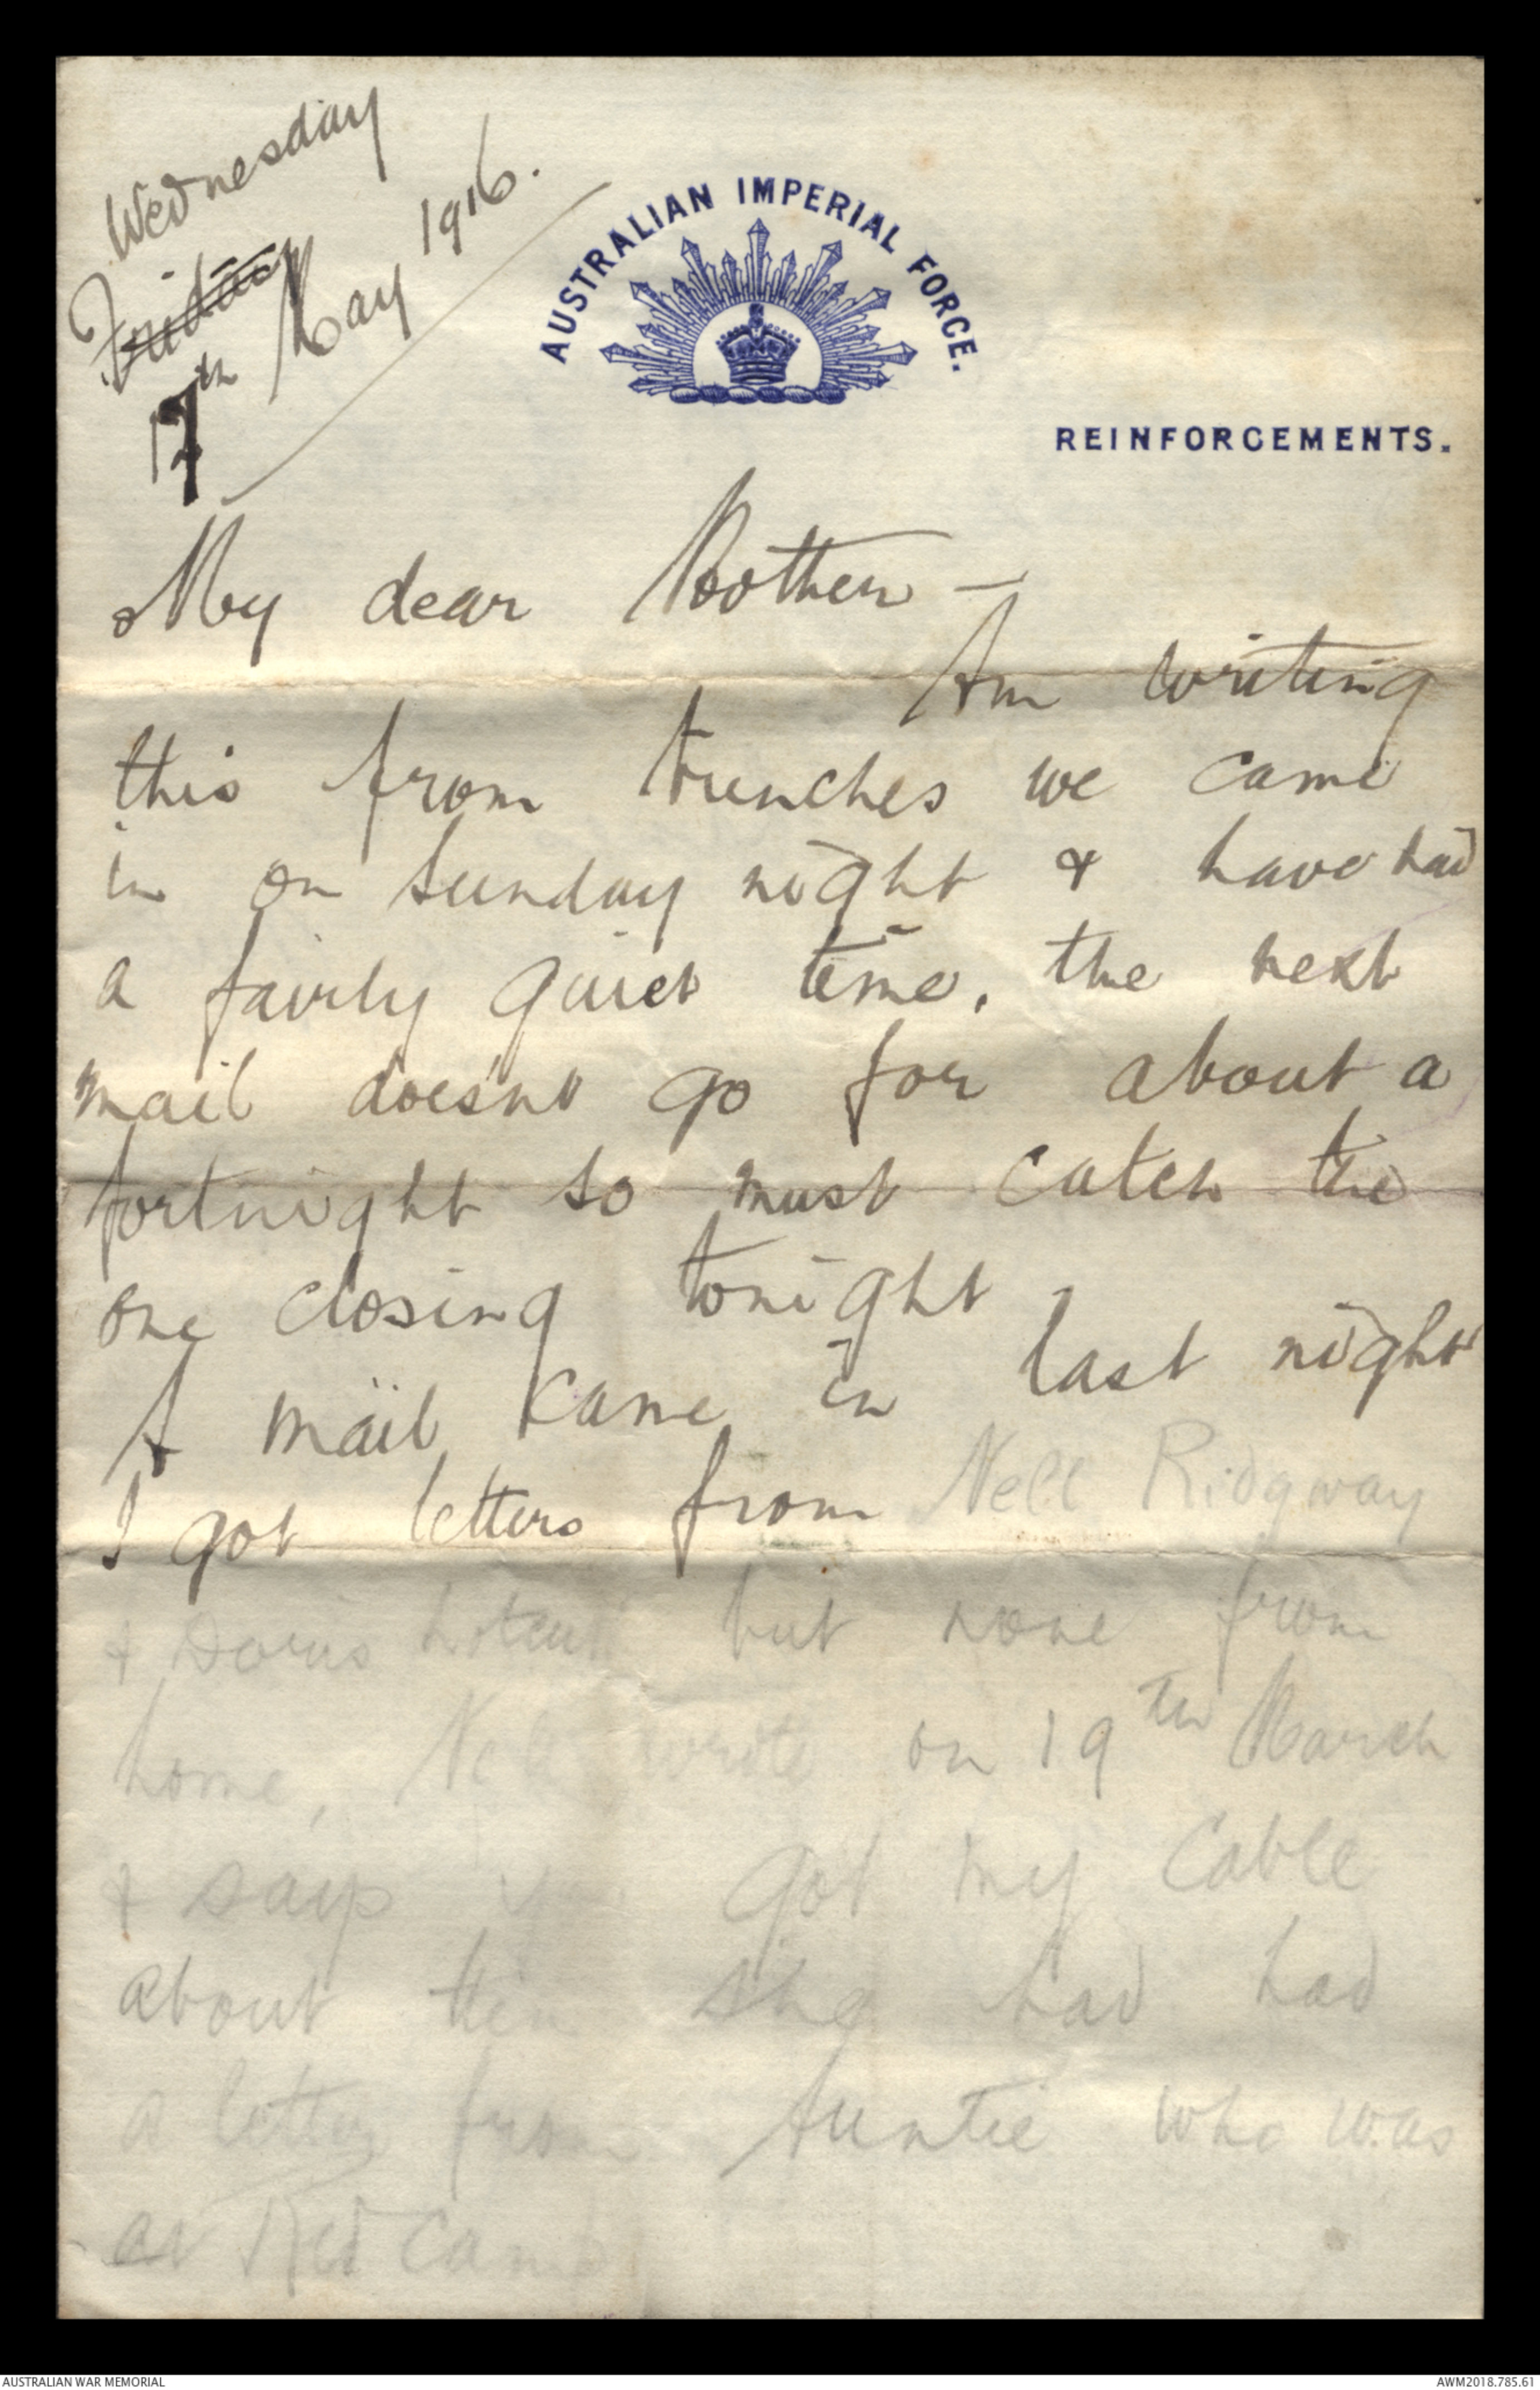 Wednesday
Friday
17th May 1916.
AUSTRALIAN IMPERIAL FORCE.
REINFORCEMENTS.
My dear Mother —
Am writing
this from trenches we came
in on Sunday night & have had
a fairly quiet time, the next
mail doesnt go for about a
fortnight so must catch the
one closing tonight.
A mail came in last night
I got letters from Nell Ridgway
& Doris but none from
home, Nell wrote on 19th March
& says you got my cable
about then she had had
a letter from Auntie who was
at Red
AUSTRALIAN WAR MEMORIAL
AWM2018.785.61